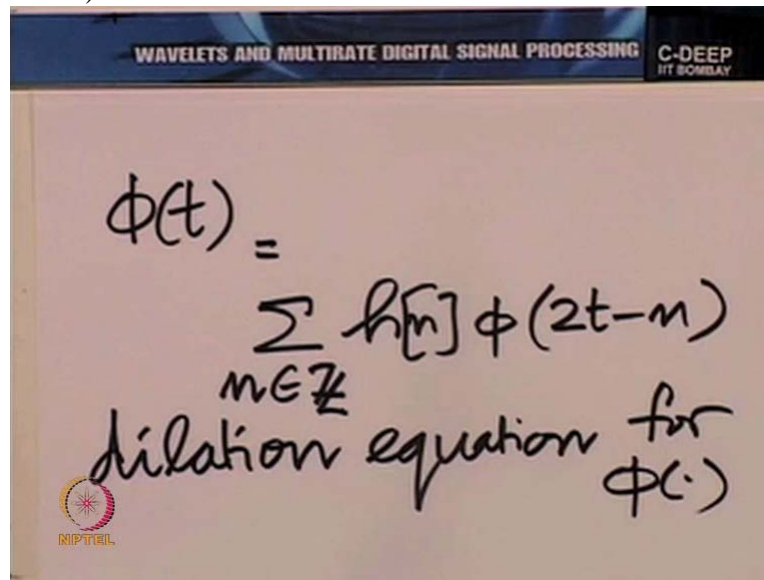 WAVELETS AND MULTIRATE DIGITAL SIGNAL PROCESSING
C-DEEP
IIT BOMBAY
ϕ(t) =
∑ h[n] ϕ(2t-n)
n∈ℤ
dilation equation for
ϕ(·)
NPTEL